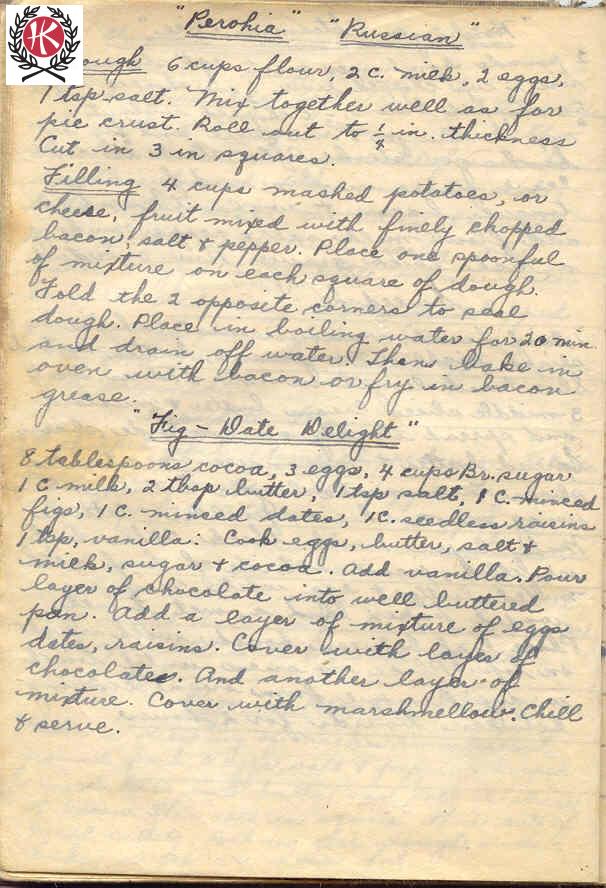 K
"Perohia" "Russian"
ough 6 cups flour, 2 c. milk, 2 eggs,
1 tsp salt. Mix together well as for
pie crust. Roll out to 1/4 in. thickness
Cut in 3 in squares.
Filling 4 cups mashed potatoes, or
cheese, fruit mixed with finely chopped
bacon, salt & pepper. Place one spoonful
of mixture on each square of dough.
Fold the 2 opposite corners to seal
dough. Place in boiling water for 20 min
and drain off water. Then bake in
oven with bacon or fry in bacon
grease.
"Fig-Date Delight"
8 tablespoons cocoa, 3 eggs, 4 cups Br. sugar
1 C. milk, 2 tbsp butter, 1 tsp salt, 1 C. minced
figs, 1 C. minced dates, 1C. seedless raisins
1 tsp, vanilla. Cook eggs, butter, salt &
milk, sugar & cocoa. Add vanilla. Pour
layer of chocolate into well buttered
pan. Add a layer of mixture of eggs
dates, raisins. Cover with layer of
chocolate. And another layer of
mixture. Cover with marshmellow. Chill
& serve.